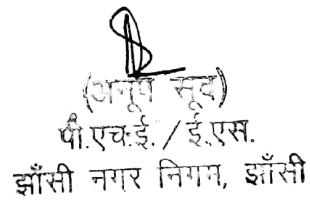 (अनूप सूद)
पी.एच.ई. / ई.एस.
झाँसी नगर निगम, झाँसी